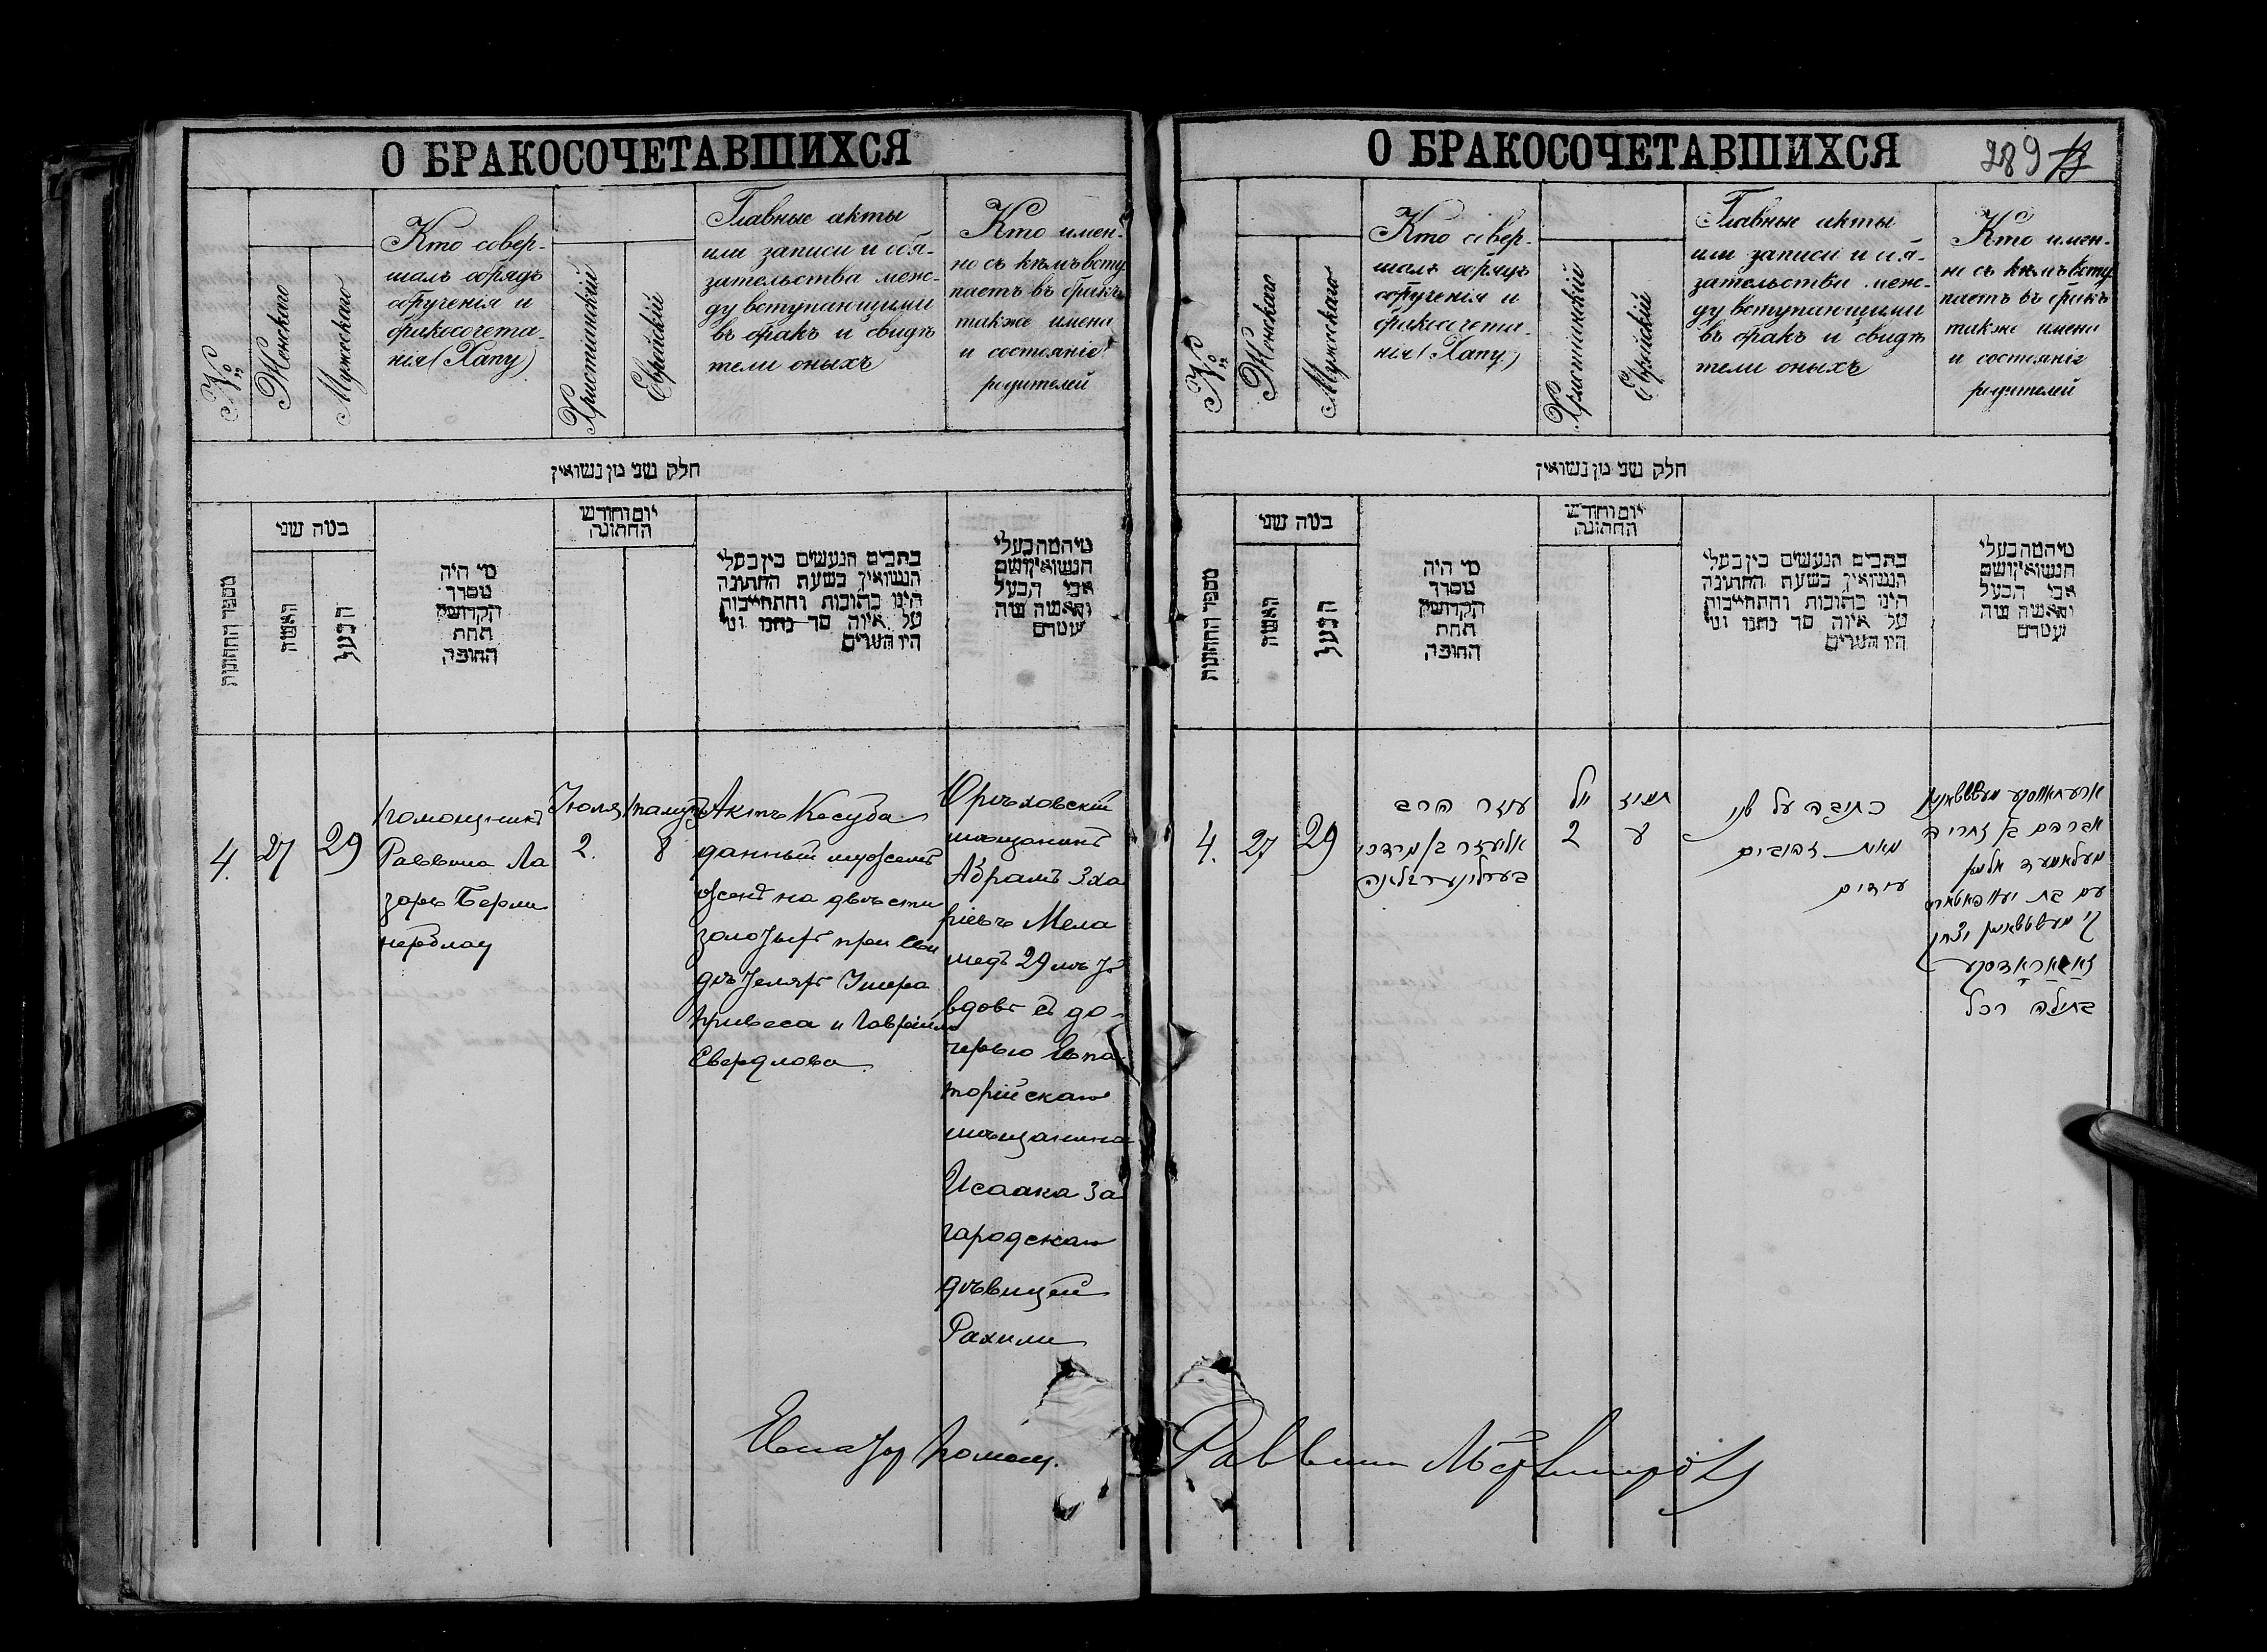 О БРАКОСОЧЕТАВШИХСЯ
№
Женскаго
Мужескаго
Кто совер-
шалъ обрядъ
обрученія и
бракосочета-
нія (Хапу)
Христіанскій
Еврейскій
Главные акты
или записи и обя-
зательства меж-
ду вступающими
въ бракъ и свидѣ
тели оныхъ
Кто имен-
но съ кѣмъ всту
паетъ въ бракъ
также имена
и состояніе
родителей
חלק שני מן נשואין
מספר החתונות
כמה שני
האשה
הבעל
מי היה
מסדר
הקדושין
תחת
החופה
יום וחודש
החתונה
כתבים הנעשים בין בעלי
הנשואין בשעת החתונה
היינו כתובות והתחייבות
על איזה סך נתנו ומי
היו העדים
מי המה בעלי
הנשואין ושם
אבי הבעל
והאשה ומה
עמדם
4.
27
29
помощникъ
Раввина Ла
заръ Берли
нерблау
Іюля
2.
тамузъ
8
Актъ Кесуба
данный мужемъ
женѣ на двѣсти
золотыхъ при сви
дѣтеляхъ
Привеса и Гавріила
Свердлова
Орѣховскій
мѣщанинъ
Абрамъ Зха
ріевъ Мела
медъ 29 лѣтъ
вдовъ съ до-
черью Евпа
торійскаго
мѣщанина
Исаака За
городскаго
дѣвицей
Рахили
Помощ.
О БРАКОСОЧЕТАВШИХСЯ
289
№
Женскаго
Мужескаго
Кто совер-
шалъ обрядъ
обрученія и
бракосочета-
нія (Хапу)
Христіанскій
Еврейскій
Главные акты
или записи и обя-
зательства меж-
ду вступающими
въ бракъ и свидѣ
тели оныхъ
Кто имен-
но съ кѣмъ всту
паетъ въ бракъ
также имена
и состояніе
родителей
חלק שני מן נשואין
מספר החתונות
כמה שני
האשה
הבעל
מי היה
מסדר
הקדושין
תחת
החופה
יום וחודש
החתונה
כתבים הנעשים בין בעלי
הנשואין בשעת החתונה
היינו כתובות והתחייבות
על איזה סך נתנו ומי
היו העדים
מי המה בעלי
הנשואין ושם
אבי הבעל
והאשה ומה
עמדם
4.
27
29
עוזר הרב
אליעזר בן מרדכי
בערלינערבלאה
יול
2
תמוז
כתובה על שני
מאות זהובים
עידים
אברהם בן זחריה
מעלאמעד אלמן
עם בת
יצחק
בתולה רחל
Раввинъ